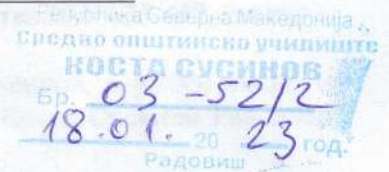 Република Северна Македонија
Средно општинско училиште
КОСТА СУСИНОВ
Бр. 03-52/2
18.01. 20 23 год.
Радовиш